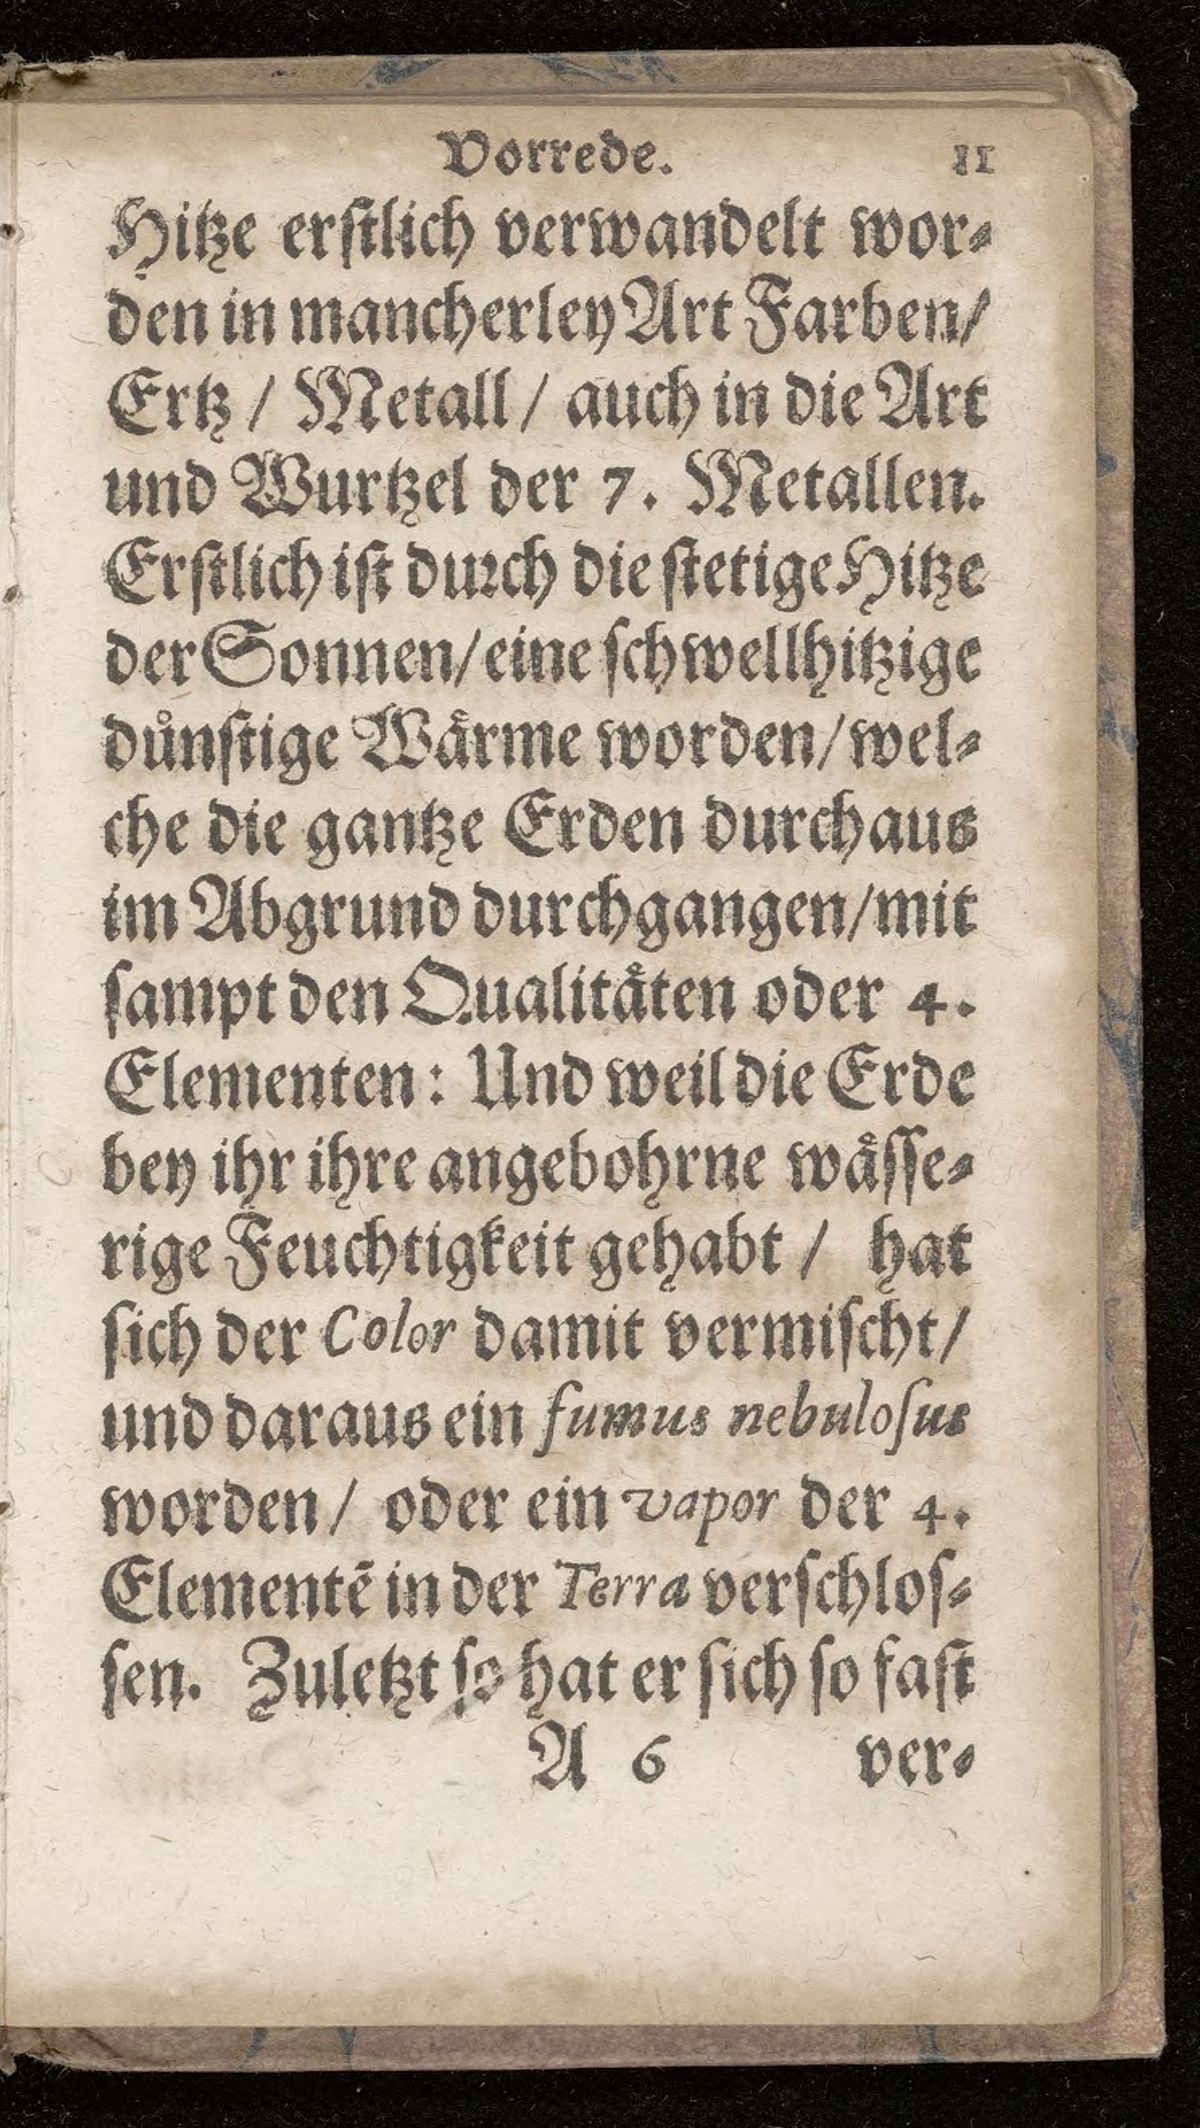 Vorrede. 11
Hitze erſtlich verwandelt wor⸗
den in mancherley Art Farben/
Ertz / Metall / auch in die Art
und Wurtzel der 7. Metallen.
Erſtlich iſt durch die ſtetige Hitze
der Sonnen/ eine ſchwellhitzige
duͤnſtige Waͤrme worden/ wel⸗
che die gantze Erden durchaus
im Abgrund durchgangen/ mit
ſampt den Qualitaͤten oder 4.
Elementen: Und weil die Erde
bey ihr ihre angebohrne waͤſſe⸗
rige Feuchtigkeit gehabt / hat
ſich der Color damit vermiſcht/
und daraus ein fumus nebuloſus
worden/ oder ein vapor der 4.
Elementē in der Terra verſchloſ⸗
ſen. Zuletzt ſo hat er ſich ſo faſt
A 6 ver⸗